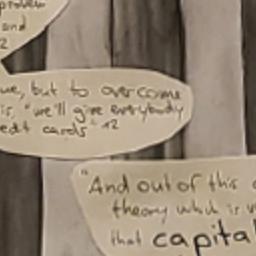 problem
and
2
ue, but to overcome
is, "we'll give everybody
edit cards" 12
"And out of this c
theory which is v
that capital